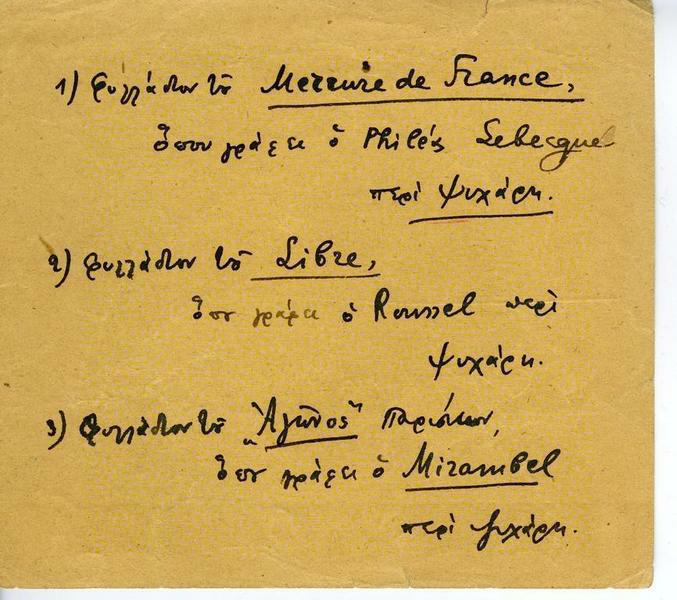 1) Φυλλάδιον τοῦ Mercure de France,
ὅπου γράφει ὁ Philéas Lebesgue
περὶ Ψυχάρη.
2) Φυλλάδιον τοῦ Libre,
ὅπου γράφει ὁ Roussel περὶ
Ψυχάρη.
3) Φυλλάδιον τοῦ "Ἀγῶνος" Παρισίων,
ὅπου γράφει ὁ Mirambel
περὶ Ψυχάρη.